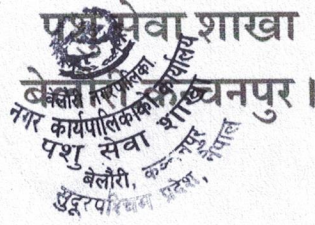 पशु सेवा शाखा
बेलौरी कञ्चनपुर ।
बेलौरी नगरपालिका
नगर कार्यपालिकाको कार्यालय
पशु सेवा शाखा
बेलौरी, कञ्चनपुर
सुदूरपश्चिम प्रदेश, नेपाल